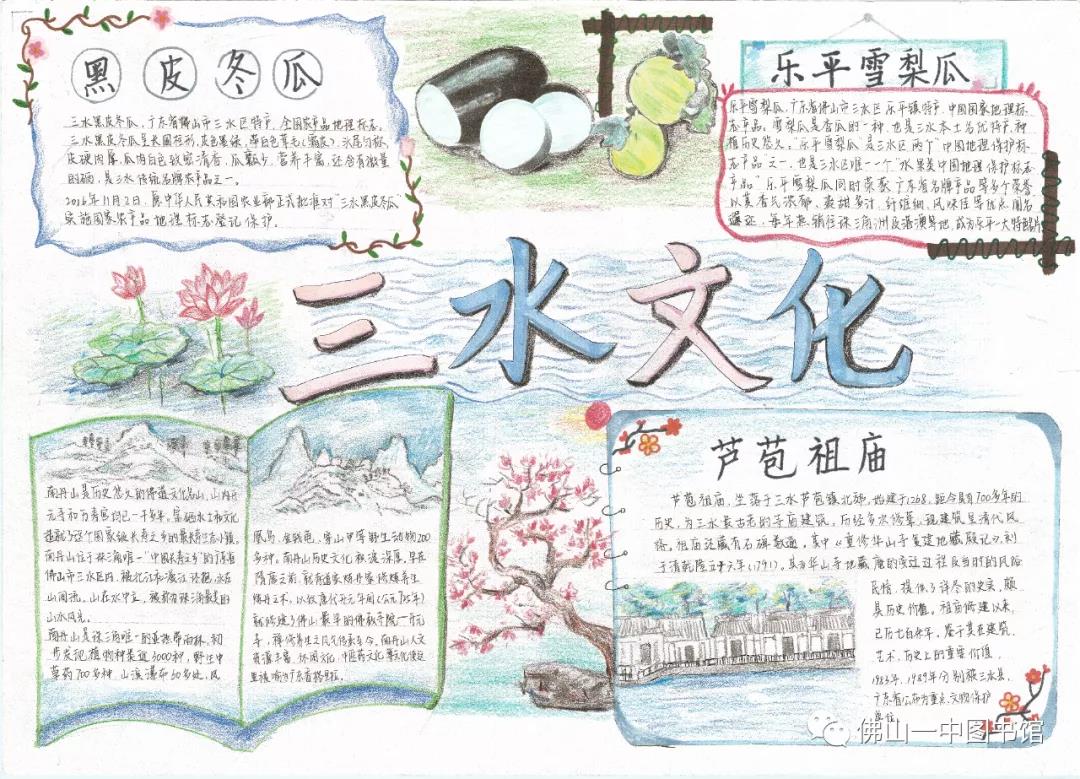 黑皮冬瓜
三水黑皮冬瓜，广东省佛山市三水区特产，全国农产品地理标志。
三水黑皮冬瓜呈长圆柱形，皮色墨绿，
皮硬肉厚，瓜肉白色致密清香，瓜瓤少，营养丰富，还含有微量
的硒，是三水传统名牌农产品之一。
2016年11月2日，原中华人民共和国农业部正式批准对“三水黑皮冬瓜”
实施国家农产品地理标志登记保护。
乐平雪梨瓜
乐平雪梨瓜，广东省佛山市三水区乐平镇特产，中国国家地理标
志产品。雪梨瓜是香瓜的一种，也是三水本土名优特产，种
植历史悠久。“乐平雪梨瓜”是三水区两个“中国地理保护标
志产品”之一，也是三水区唯一一个“水果类中国地理保护标志
产品”。乐平雪梨瓜同时荣获广东省名牌产品等多个荣誉
以其香气浓郁、爽甜多汁、纤维细、风味佳等优点闻名
遐迩，每年热销往珠三角洲及港澳等地，成为乐平一大特色
三水文化
南丹山是历史悠久的佛道文化名山，山内开
元寺和万寿宫均已一千多年，
造就了这个国家级长寿之乡的最长寿生态小镇。
南丹山位于珠三角唯一“中国长寿之乡”的
佛山市三水区内，
山间流。山在水中立，
山水风光。
南丹山是珠三角唯一的
步发现植物种类近3000种，野生中
草药700多种，山溪瀑布60多处，凤
凰鸟、金钱龟、穿山甲等野生动物200
多种。南丹山历史文化积淀深厚，早在
隋唐之前，就有道家
丹之术，以致唐代开元年间
就修建了佛山最早的佛教寺院——开元
寺，禅修养生之风气传承至今。南丹山人文
资源丰富，休闲文化、中医药文化、
芦苞祖庙
芦苞祖庙，坐落于三水芦苞镇北部，始建于1268，距今具有700多年的
历史，为三水最古老的寺庙建筑。历经多次修葺，现建筑呈清代风
格。祖庙还藏有石碑数通，其中《重修华山寺
于清乾隆五十六年（1791）。其为华山寺地藏庵的变迁过程及当时的风俗
民情，提供了详尽的史实，颇
具历史价值。祖庙修建以来，
已历七百余年，鉴于其在建筑、
艺术、历史上的重要价值，
1983年、1989年分别被三水县、
广东省公布为重点文物保护
单位
佛山一中图书馆